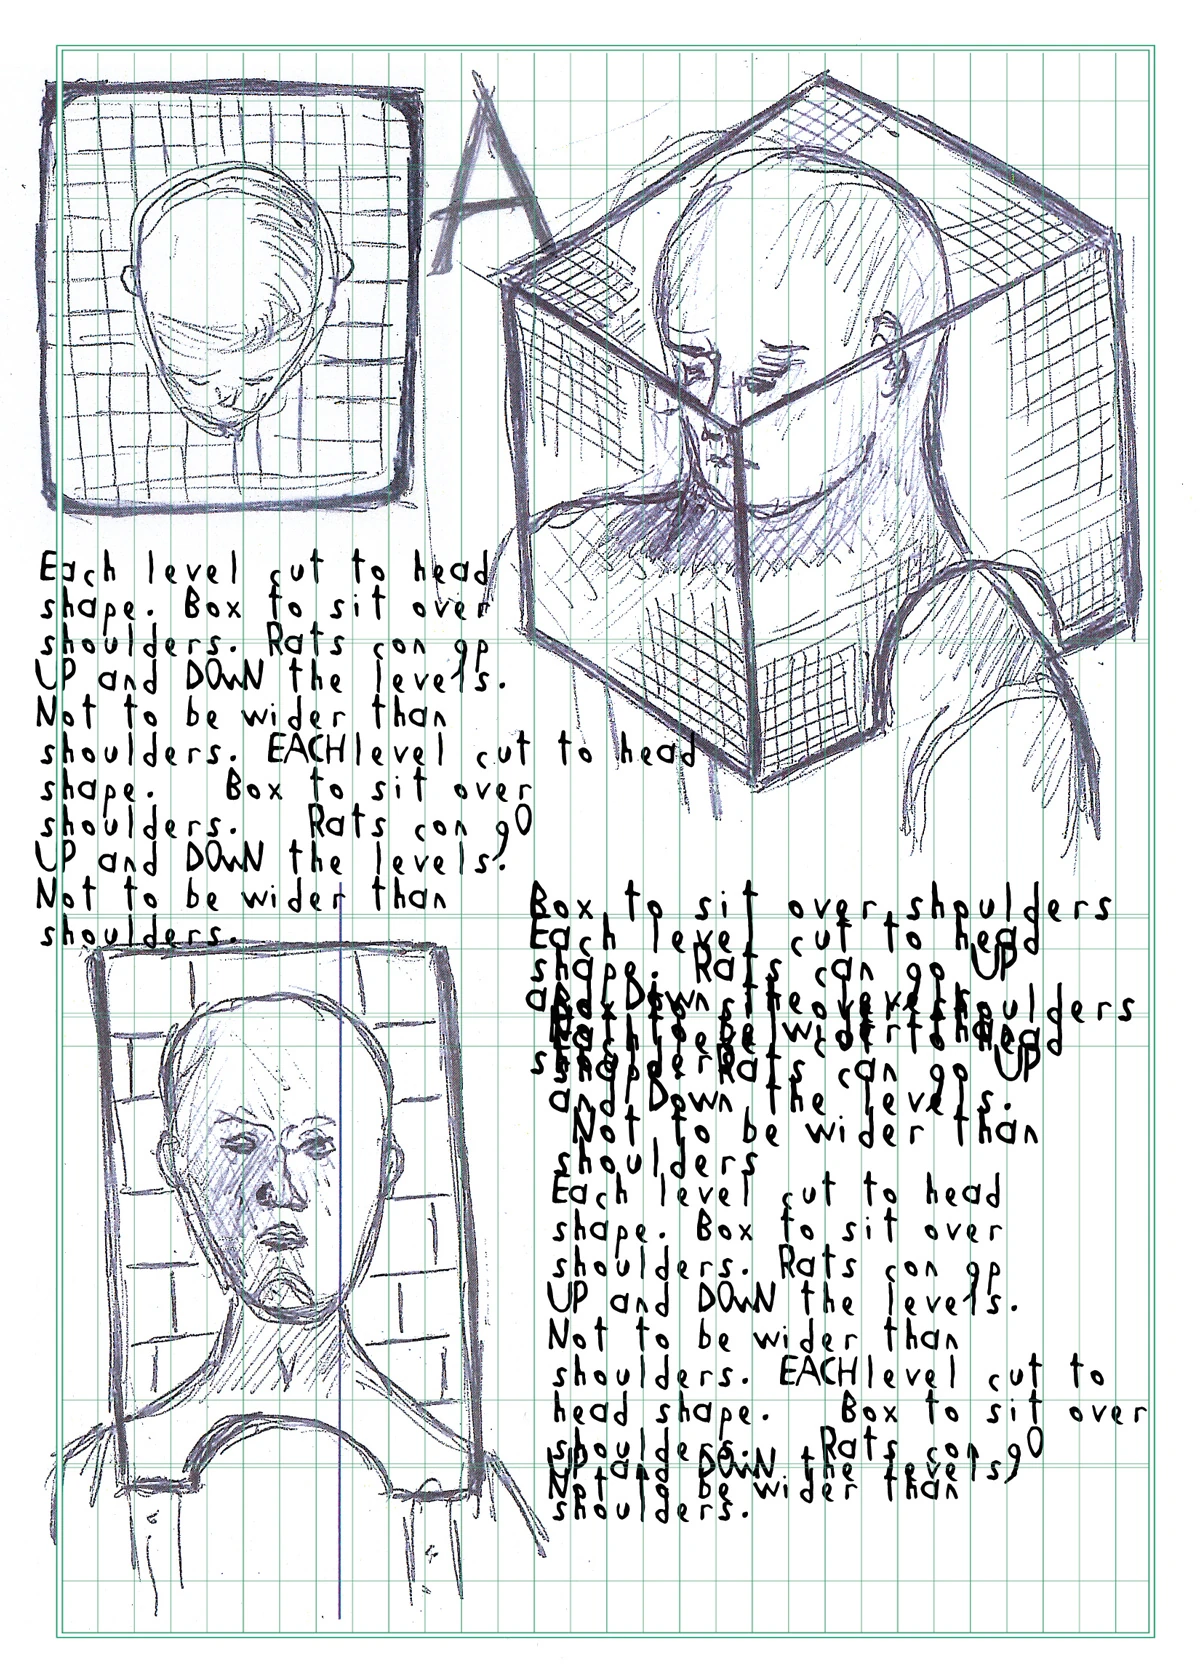 A
Each level cut to head
shape. Box to sit over
shoulders. Rats con go
UP and DOwN the levels.
Not to be wider than
shoulders. EACH level cut to head
shape. Box to sit over
shoulders. Rats con gO
UP and DOwN the levels.
Not to be wider than
shoulders.
Box to sit over shoulders
Each level cut to head
shape. Rats can go UP
and Down the levels
shoulders
Rats can go UP
and Down the levels.
Not to be wider than
shoulders
Each level cut to head
shape. Box to sit over
shoulders. Rats con go
UP and DOwN the levels.
Not to be wider than
shoulders. EACH level cut to
head shape. Box to sit over
shoulders. Rats con gO
UP and DOwN the levels,
Not to be wider than
shoulders.